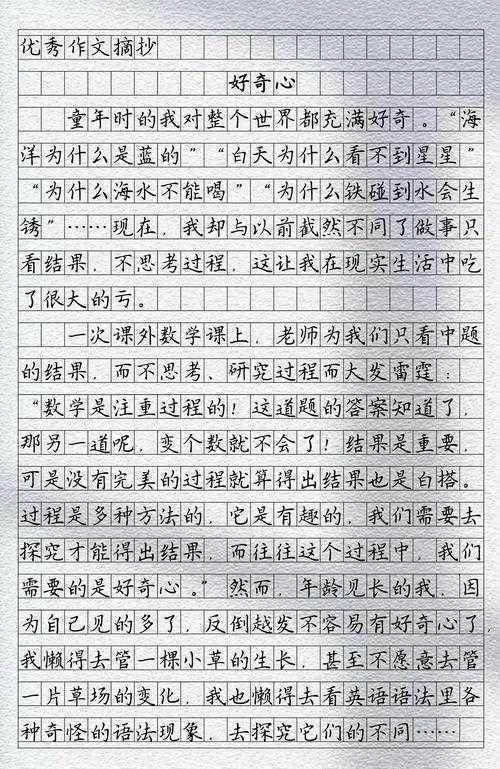 优秀作文摘抄
好奇心
童年时的我对整个世界都充满好奇。“海
洋为什么是蓝的”“白天为什么看不到星星”
“为什么海水不能喝”“为什么铁碰到水会生
锈”……现在，我却与以前截然不同了做事只
看结果，不思考过程，这让我在现实生活中吃
了很大的亏。
一次课外数学课上，老师为我们只看中题
的结果，而不思考、研究过程而大发雷霆：
“数学是注重过程的！这道题的答案知道了，
那另一道呢，变个数就不会了！结果是重要，
可是没有完美的过程就算得出结果也是白搭。
过程是多种方法的，它是有趣的，我们需要去
探究才能得出结果，而往往这个过程中，我们
需要的是好奇心。”然而，年龄见长的我，因
为自己见的多了，反倒越发不容易有好奇心了，
我懒得去管一棵小草的生长，甚至不愿意去管
一片草场的变化，我也懒得去看英语语法里各
种奇怪的语法现象，去探究它们的不同……